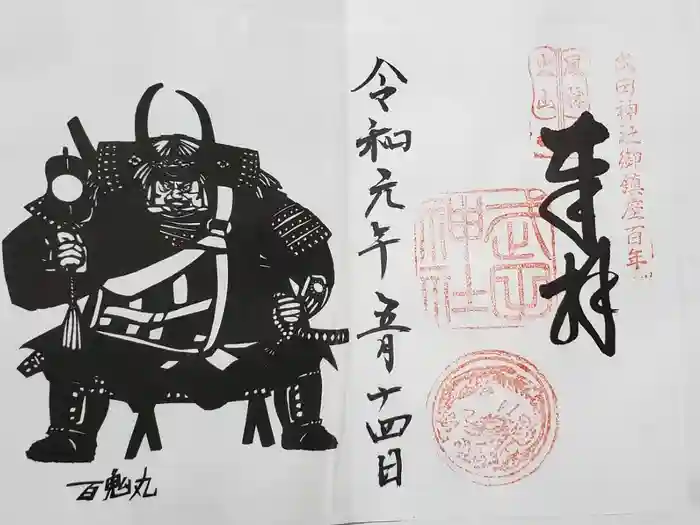 武田神社御鎮座百年
奉拝
武田神社
風林
火山
令和元年五月十四日
百鬼丸